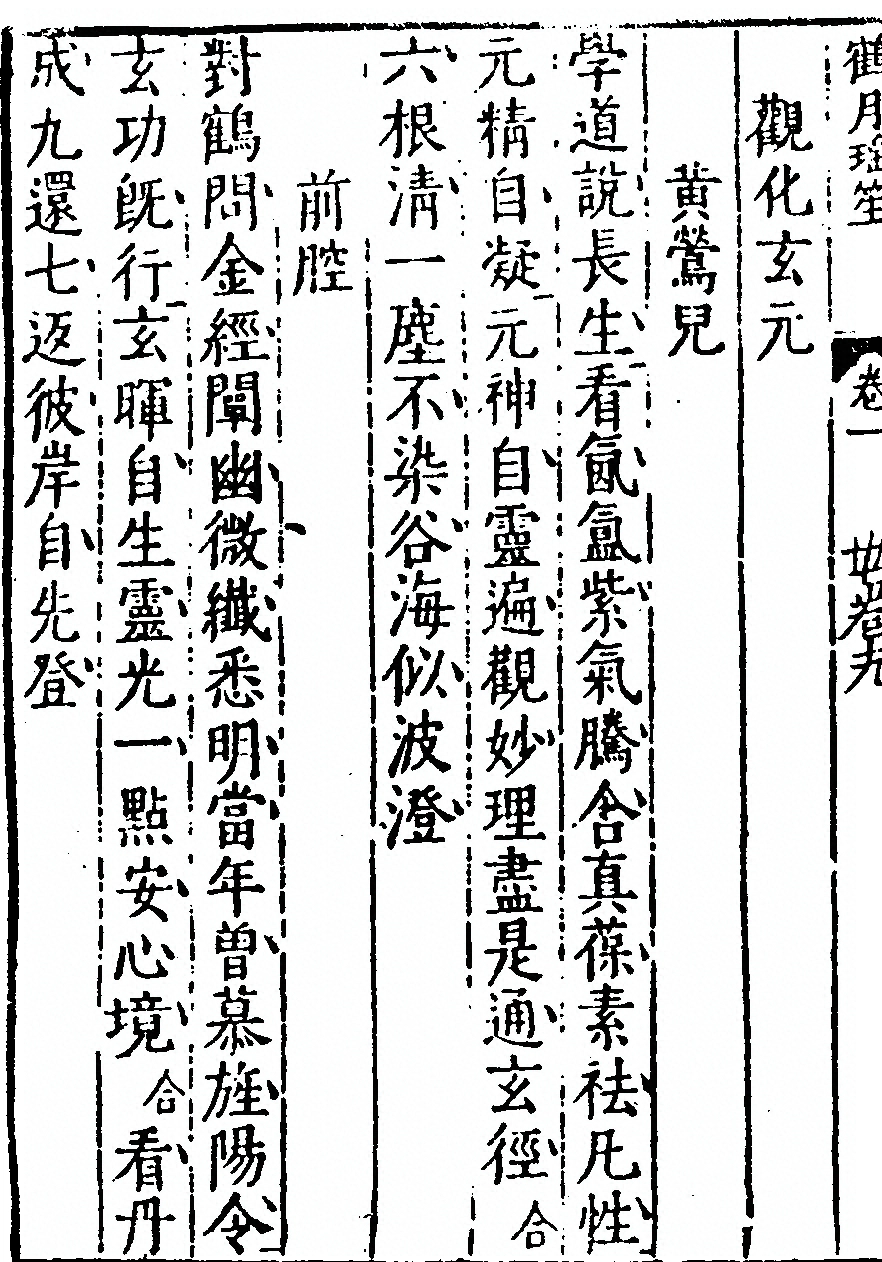 鶴月瑤笙 卷一
觀化玄元
黃鶯兒
學道說長生看氤氳紫氣騰含真葆素祛凡性
元精自凝元神自靈遍觀妙理盡是通玄徑合
六根淸一塵不染谷海似波澄
前腔
對鶴問金經闡幽微纖悉明當年曾慕旌陽令
玄功旣行玄暉自生靈光一點安心境合看丹
成九還七返彼岸自先登